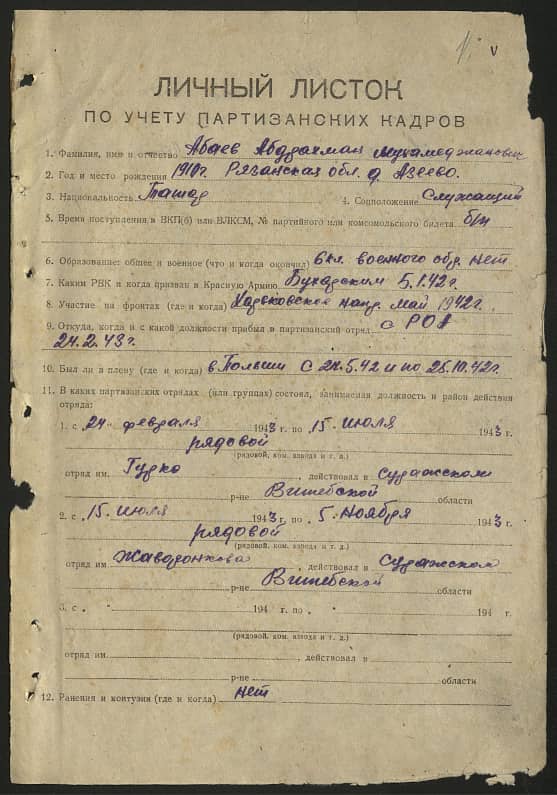 V
ЛИЧНЫЙ ЛИСТОК
ПО УЧЕТУ ПАРТИЗАНСКИХ КАДРОВ
1. Фамилия, имя и отчество Абаев Абдрахман Мухамеджанович
2. Год и место рождения 1910г. Рязанская обл. д. Азеево.
3. Национальность Татар 4. Соцположение Служащий
5. Время поступления в ВКП(б) или ВЛКСМ, № партийного или комсомольского билета б/п
6. Образование: общее и военное (что и когда окончил) 6 кл. военного обр. нет
7. Каким РВК и когда призван в Красную Армию Бухарским 5.1.42г.
8. Участие на фронтах (где и когда) Харьковское напр. май 1942г.
9. Откуда, когда и с какой должности прибыл в партизанский отряд с РОА
24.2.43г.
10. Был ли в плену (где и когда) в Польши с 24.5.42 и по 25.10.42г.
11. В каких партизанских отрядах (или группах) состоял, занимаемая должность и район действия
отряда:
1. с 24 февраля 1943 г. по 15 июля 1943 г.
рядовой
(рядовой, ком. взвода и т. д.)
отряд им. Гудко, действовал в Суражском
р-не Витебской области
2. с 15 июля 1943 г. по 5 ноября 1943 г.
рядовой
(рядовой, ком. взвода и т. д.)
отряд им Жаворонкова, действовал в Суражском
р-не Витебской области
3. с 194 г. по 194 г.
(рядовой, ком. взвода и т. д.)
отряд им. , действовал в
р-не области
12. Ранения и контузия (где и когда) нет